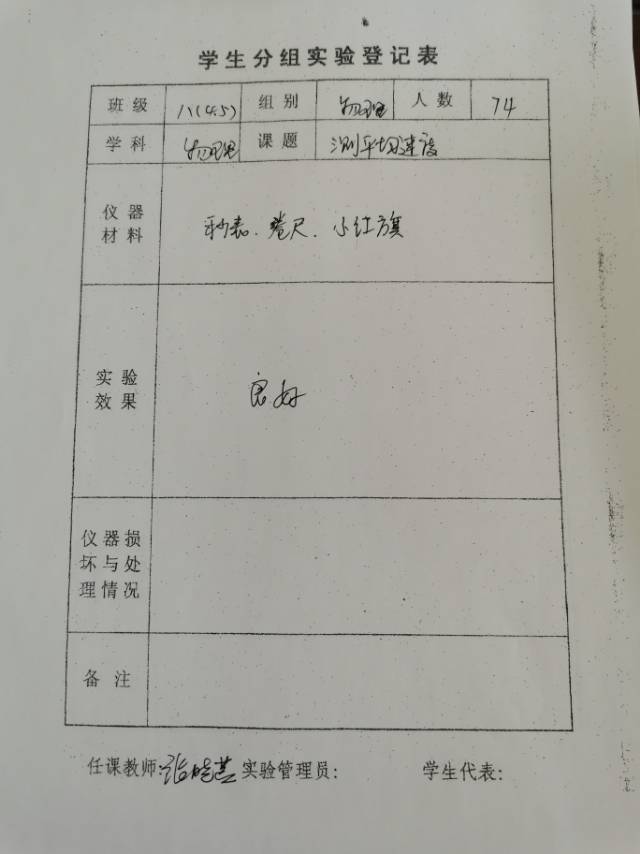 学生分组实验登记表
班级 八(4.5) 组别 物理 人数 74
学科 物理 课题 测平均速度
仪器
材料
秒表、卷尺、小红旗
实验
效果
良好
仪器损
坏与处
理情况
备注
任课教师: 实验管理员: 学生代表: